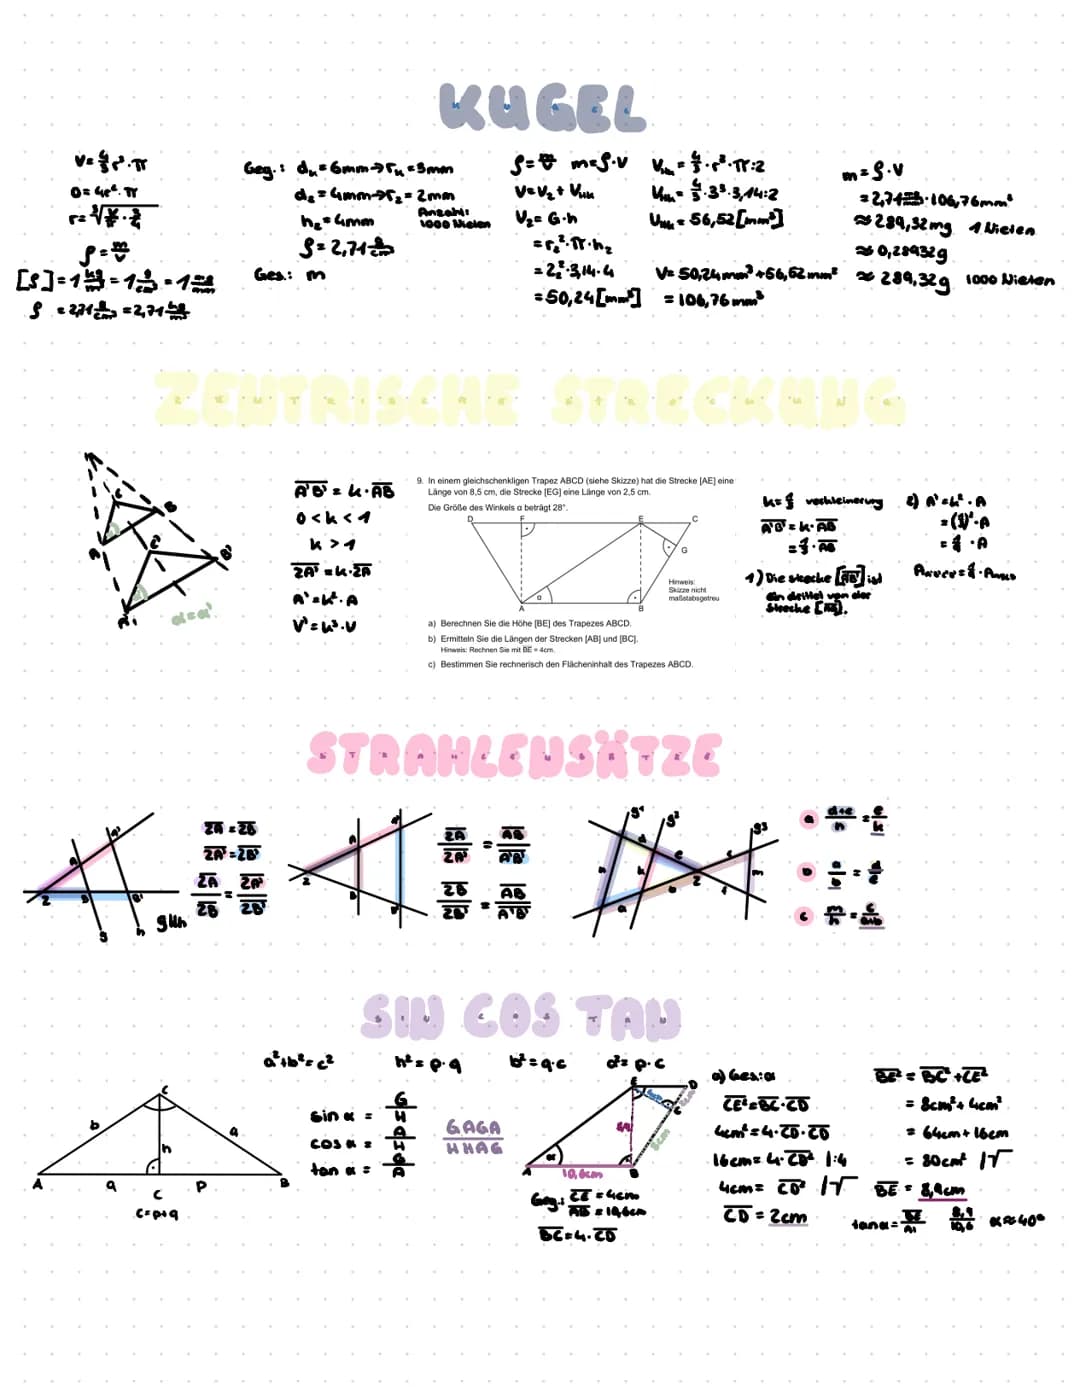 KUGEL
V = 4/3 r³ · π
O = 4r² · π
ρ = m/V
Geg.: dₖ = 6mm → rₖ = 3mm
d₂ = 4mm → r₂ = 2mm
h₂ = 4mm
Anzahl:
1000 Nieten
Ges.: m
m = ρ · V
V = V₂ + V
V₂ = G · h
= r₂² · π · h₂
= 2² · 3,14 · 4
= 50,24 [mm³]
= 4/3 · 3³ · 3,14 : 2
= 56,52 [mm³]
V = 50,24mm³ + 56,52mm³
= 106,76mm³
m = ρ · V
≈ 289,32mg 1 Nieten
≈ 0,28932g
≈ 289,32g 1000 Nieten
ZENTRISCHE STRECKUNG
A'B' = k · AB
0 < k < 1
k > 1
ZA' = k · ZA
A' = k² · A
V' = k³ · V
α = α'
9. In einem gleichschenkligen Trapez ABCD (siehe Skizze) hat die Strecke [AE] eine
Länge von 8,5 cm, die Strecke [EG] eine Länge von 2,5 cm.
Die Größe des Winkels α beträgt 28°.
D F E C
G
α
A B
Hinweis:
Skizze nicht
maßstabsgetreu
a) Berechnen Sie die Höhe [BE] des Trapezes ABCD.
b) Ermitteln Sie die Längen der Strecken [AB] und [BC].
Hinweis: Rechnen Sie mit BE = 4cm.
c) Bestimmen Sie rechnerisch den Flächeninhalt des Trapezes ABCD.
verkleinerung
A'B' = k · AB
1) Die Strecke [A'B'] ist
ein drittel von der
Strecke [AB].
2) A' = k² · A
STRAHLENSÄTZE
ZA = ZB
ZA' = ZB'
ZA/ZB = ZA'/ZB'
g∥h
ZA/ZA' = AB/A'B'
ZB/ZB' = AB/A'B'
a (d+e)/n = e/k
b a/b = d/e
c m/n = c/(a+b)
SIN COS TAN
a² + b² = c²
h² = p · q
b² = q · c
a² = p · c
C
b a
h
A q C p B
c = p+q
sin α = G/H
cos α = A/H
tan α = G/A
GAGA
HHAG
10,6cm
Geg.: CE = 4cm
AB = 10,6cm
BC = 4 · CD
a) Ges.: α
CE² = BC · CD
4cm² = 4 · CD · CD
16cm = 4 · CD² |:4
4cm = CD² |√
CD = 2cm
BE² = BC² + CE²
= 8cm² + 4cm²
= 64cm + 16cm
= 80cm² |√
BE = 8,9cm
8,9/10,6 α ≈ 40°